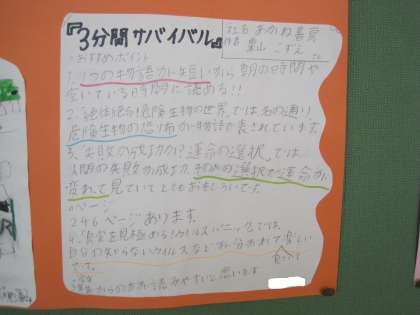 『3分間サバイバル』
社名 あかね書房
作者 粟山 こずえ
・おすすめポイント
1.1つの物語が短いから 朝の時間や
空いている時間に読める!!
2.絶体絶命!危険生物の世界。では名の通り
危険生物の恐怖が物語で表されています。
3.失敗か成功か!?運命の選択。では
人間の失敗か成功か、初めの選択で運命が
変わって見ていてとてもおもしろいです。
・ページ
246ページあります。
4.真実を見極めろウイルスパニック。では
自分の知らないウイルスなどが分かって楽しい
です。
からの お方が読みやすいと思います